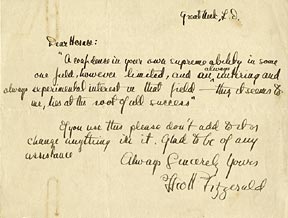 Great Neck, L.I.
Dear Horace:
"A confidence in your own supreme ability in some
one field, however limited, and an unerring and
always
always experimental interest in that field — this, it seems to
me, lies at the root of all success"
If you use this please don't add to it or
change anything in it. Glad to be of any
assistance
Always Sincerely Yours
F Scott Fitzgerald